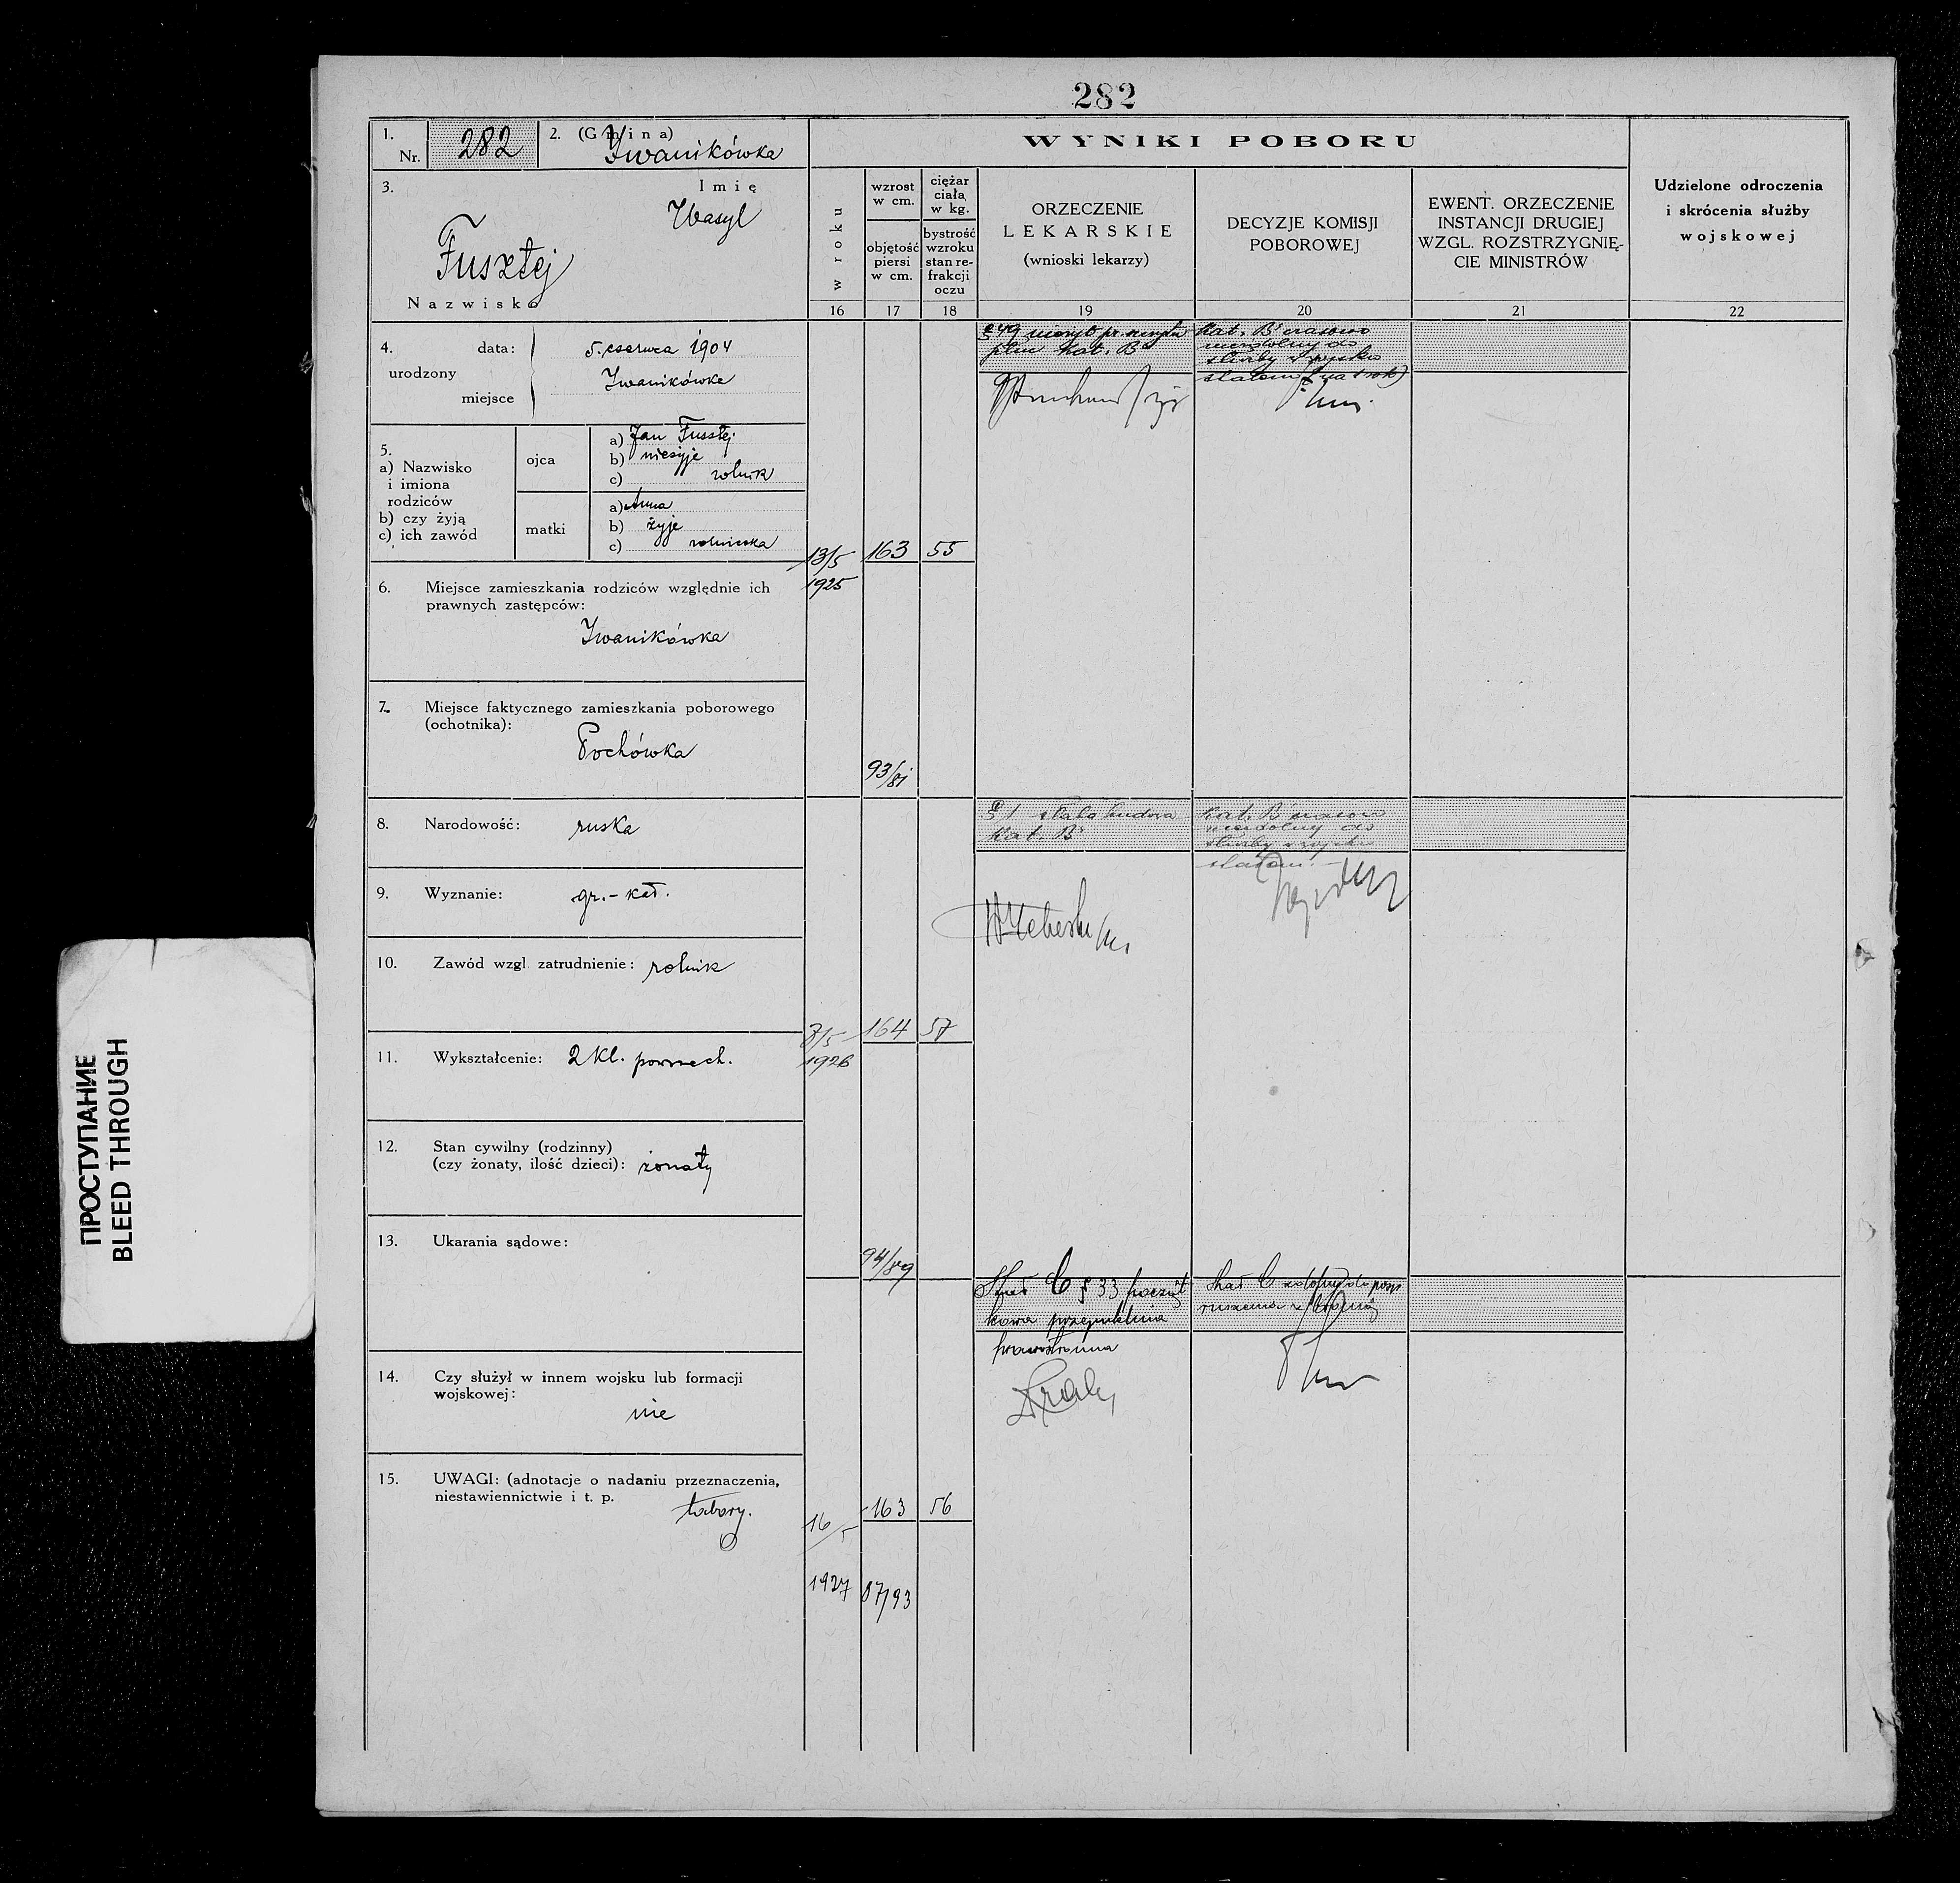 282
1.
Nr. 282
2. (Gmina)
Iwanikówka
3.
Imię
Wasyl
Fusztej
Nazwisko
4.
urodzony
data: 5. czerwca 1904
miejsce Iwanikówka
5.
a) Nazwisko
i imiona
rodziców
b) czy żyją
c) ich zawód
ojca
a) Jan Fusztej
b) nieżyje
c) rolnik
matki
a) Anna
b) żyje
c) rolniczka
6. Miejsce zamieszkania rodziców względnie ich
prawnych zastępców:
Iwanikówka
7. Miejsce faktycznego zamieszkania poborowego
(ochotnika):
Pochówka
8. Narodowość: ruska
9. Wyznanie: gr.-kat.
10. Zawód wzgl. zatrudnienie: rolnik
11. Wykształcenie: 2 kl. powszech.
12. Stan cywilny (rodzinny)
(czy żonaty, ilość dzieci): żonaty
13. Ukarania sądowe:
14. Czy służył w innem wojsku lub formacji
wojskowej:
nie
15. UWAGI: (adnotacje o nadaniu przeznaczenia,
niestawiennictwie i t. p.
tabory.
WYNIKI POBORU
w roku
16
wzrost
w cm.
objętość
piersi
w cm.
17
ciężar
ciała
w kg.
bystrość
wzroku
stan re-
frakcji
oczu
18
ORZECZENIE
LEKARSKIE
(wnioski lekarzy)
19
DECYZJE KOMISJI
POBOROWEJ
20
EWENT. ORZECZENIE
INSTANCJI DRUGIEJ
WZGL. ROZSTRZYGNIĘ-
CIE MINISTRÓW
21
Udzielone odroczenia
i skrócenia służby
wojskowej
22
13/5
1925
163
55
93/81
§ 49
kat. B
Kat. B czasowo
niezdolny do
służby w wojsku
stałem (na 1 rok)
1926
164
57
94/89
§ 1 słaba budowa
Kat. B
Kat. B czasowo
niezdolny do
służby wojsku
stałem.
16/5
1927
163
56
87/93
C § 33 początkowa
przepuklina
prawostronna
C zdolny do posp
ruszenia z bronią
ПРОСТУПАНИЕ
BLEED THROUGH